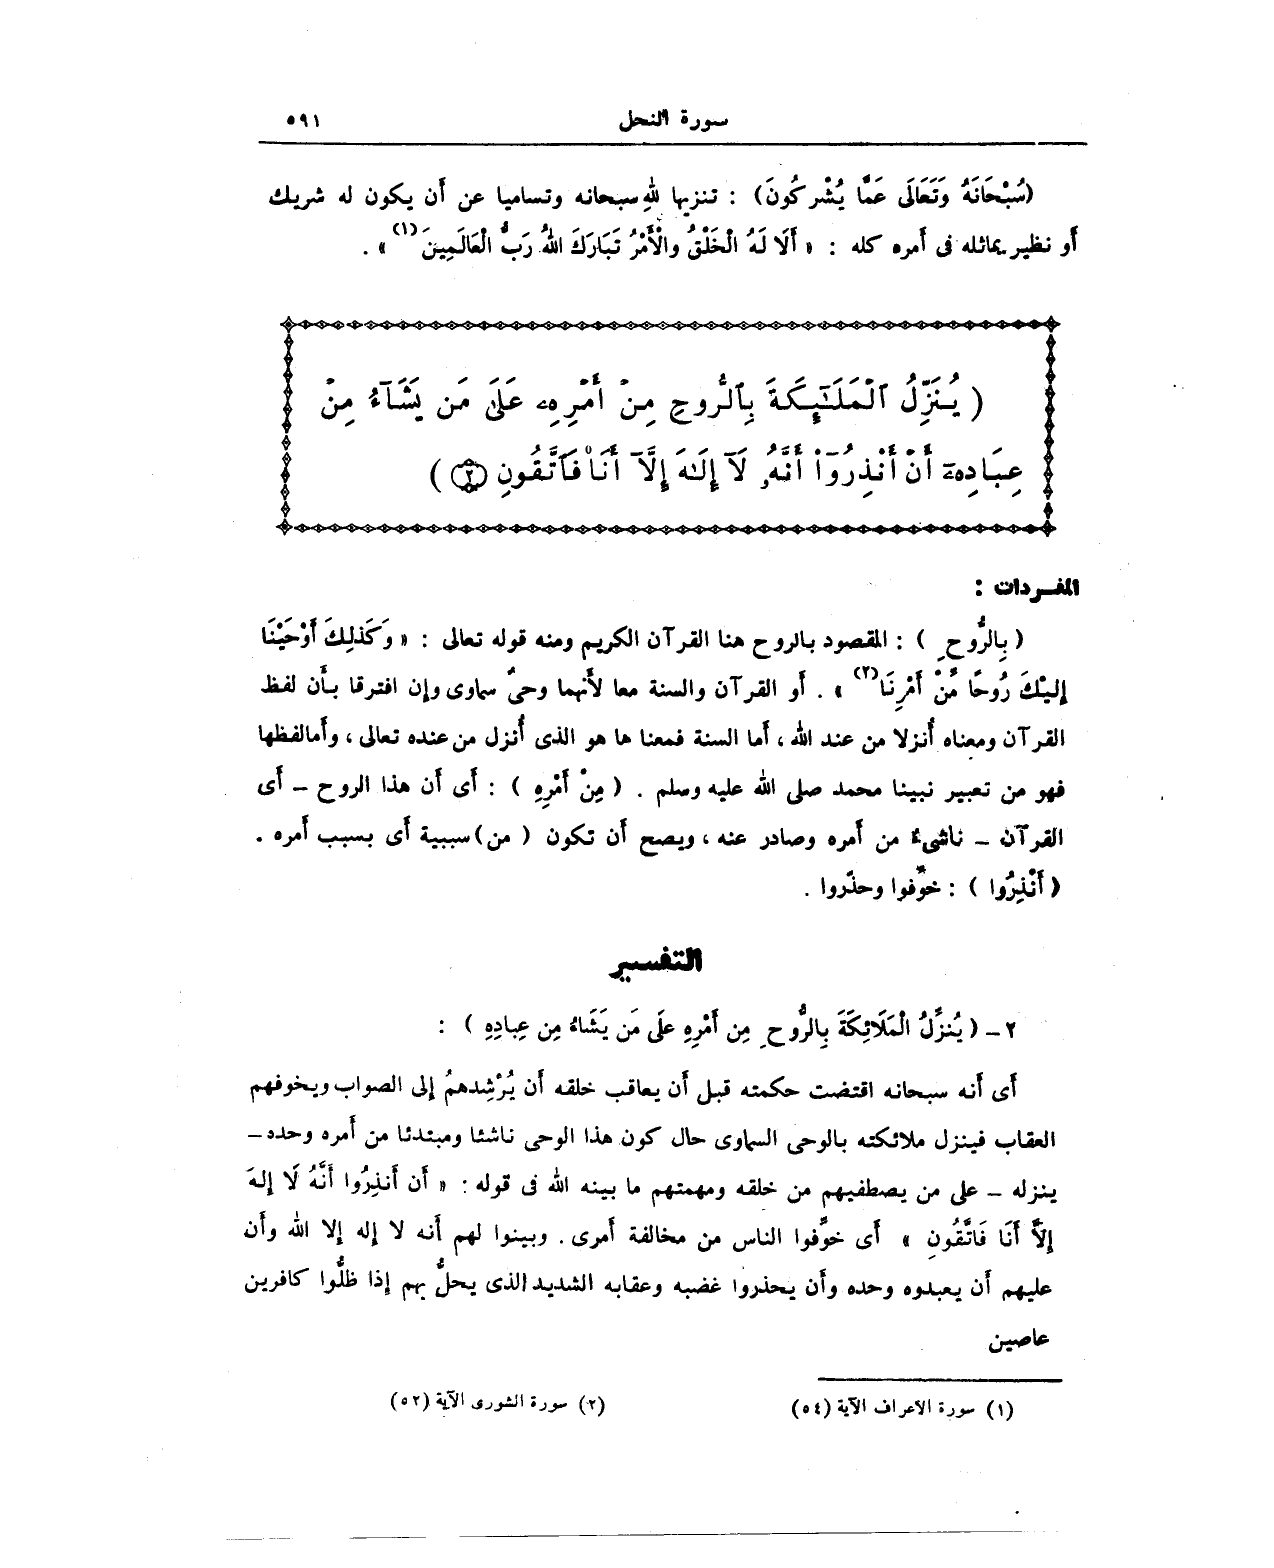 سورة النحل ٥٩١
(سُبْحَانَهُ وَتَعَالَى عَمَّا يُشْرِكُونَ) : تنزيها للهِ سبحانه وتساميا عن أن يكون له شريك
أو نظير يماثله فى أمره كله : « أَلَا لَهُ الْخَلْقُ والْأَمْرُ تَبَارَكَ اللهُ رَبُّ الْعَالَمِينَ (١) » .
( يُنَزِّلُ ٱلْمَلَٰٓئِكَةَ بِٱلرُّوحِ مِنْ أَمْرِهِۦ عَلَىٰ مَن يَشَآءُ مِنْ
عِبَادِهِۦٓ أَنْ أَنذِرُوٓا۟ أَنَّهُۥ لَآ إِلَٰهَ إِلَّآ أَنَا۠ فَٱتَّقُونِ (٢) )
المفردات :
( بِالرُّوحِ ) : المقصود بالروح هنا القرآن الكريم ومنه قوله تعالى : « وَكَذلِكَ أَوْحَيْنَا
إِليْكَ رُوحًا مِّنْ أَمْرِنَا (٢) » . أو القرآن والسنة معا لأنهما وحىٌ سماوى وإن افترقا بأن لفظ
القرآن ومعناه أُنزلا من عند الله ، أما السنة فمعنا ها هو الذى أُنزل من عنده تعالى ، وأمالفظها
فهو من تعبير نبينا محمد صلى الله عليه وسلم . ( مِنْ أَمْرِهِ ) : أى أن هذا الروح – أى
القرآن – ناشىءٌ من أمره وصادر عنه ، ويصح أن تكون ( من ) سببية أى بسبب أمره .
( أَنْذِرُوا ) : خوِّفوا وحذّروا .
التفسير
٢ – ( يُنزِّلُ الْمَلَائِكَةَ بِالرُّوحِ مِن أَمْرِهِ عَلَى مَن يَشَاءُ مِن عِبادِهِ ) :
أى أنه سبحانه اقتضت حكمته قبل أن يعاقب خلقه أن يُرْشِدهمُ إلى الصواب ويخوفهم
العقاب فينزل ملائكته بالوحى السماوى حال كون هذا الوحى ناشئا ومبتدئا من أمره وحده –
ينزله – على من يصطفيهم من خلقه ومهمتهم ما بينه الله فى قوله : « أَن أَنذِرُوا أَنَّهُ لَا إِلهَ
إِلَّا أَنَا فَاتَّقُونِ » أى خوِّفوا الناس من مخالفة أمرى . وبينوا لهم أنه لا إله إلا الله وأن
عليهم أن يعبدوه وحده وأن يحذروا غضبه وعقابه الشديد الذى يحلُّ بهم إذا ظلُّوا كافرين
عاصين
(١) سورة الاعراف الآية (٥٤) (٢) سورة الشورى الآية (٥٢)